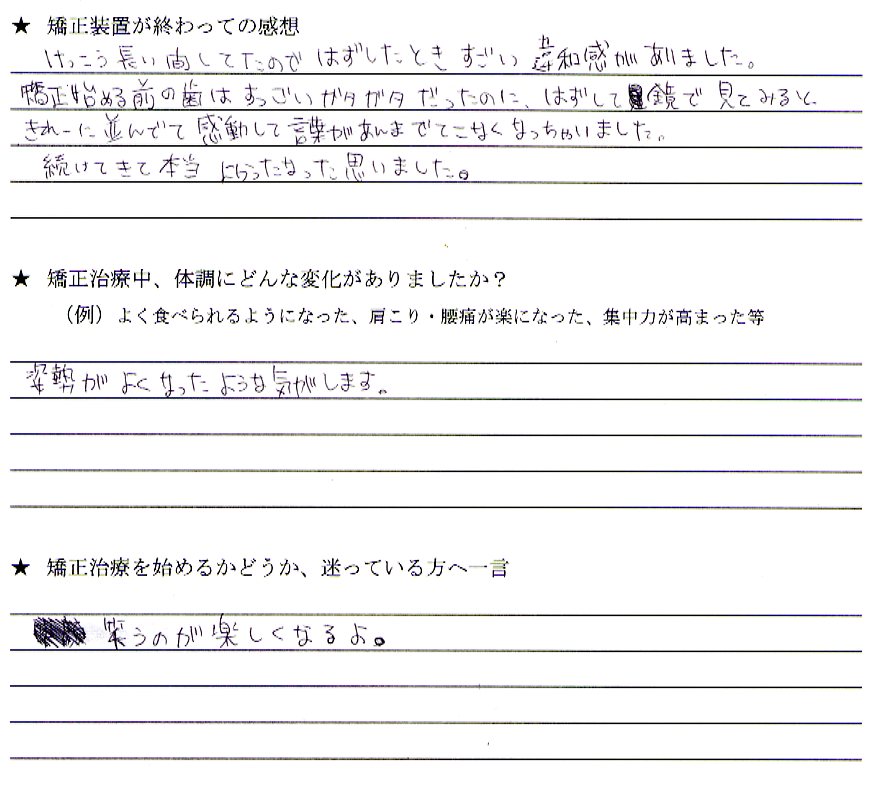 ★ 矯正装置が終わっての感想
けっこう長い間してたので はずしたとき すごい 違和感がありました。
矯正始める前の歯はすっごいガタガタだったのに、はずして鏡で見てみると
きれーに並んでて感動して言葉があんまでてこなくなっちゃいました。
続けてきて本当 思いました。
★ 矯正治療中、体調にどんな変化がありましたか？
（例）よく食べられるようになった、肩こり・腰痛が楽になった、集中力が高まった等
姿勢が よくなったような気がします。
★ 矯正治療を始めるかどうか、迷っている方へ一言
笑うのが楽しくなるよ。